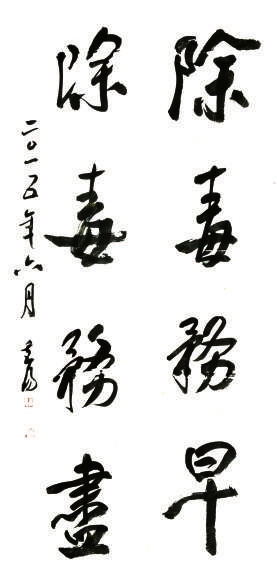 除毒務早
除毒務盡
二〇一五年六月